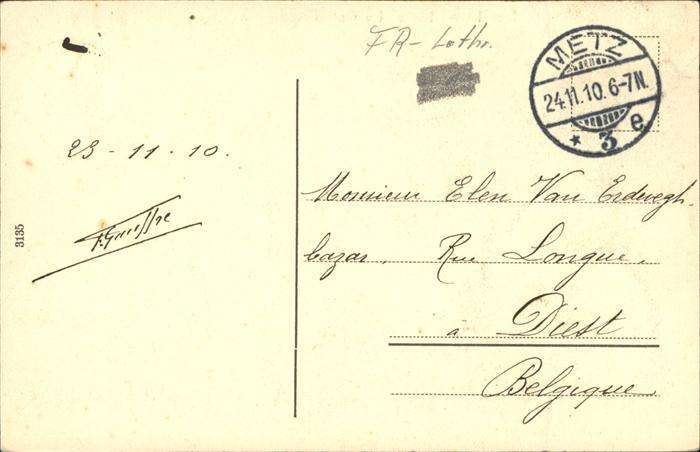 FR - Lothr.
METZ
24.11.10.6-7N.
* 3 e
23 - 11 - 10.
3135
Monsieur Elen Van Erdwegh-
bazar, Rue Longue,
à Diest
Belgique